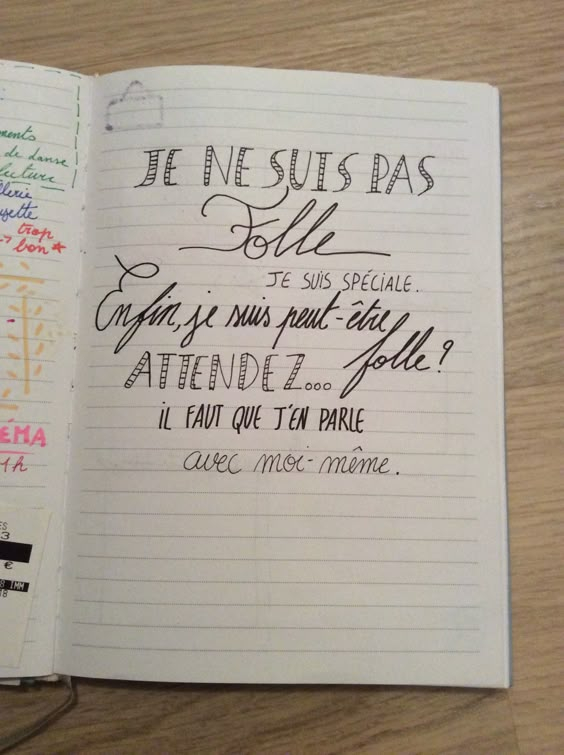 ments
de danse
lecture
llerie
uzette
→ trop
bon *
ÉMA
1h
ES
3
€
8 IMM
TB
JE NE SUIS PAS
Folle
JE SUIS SPÉCIALE.
Enfin, je suis peut-être
folle?
ATTENDEZ...
IL FAUT QUE J'EN PARLE
avec moi-même.